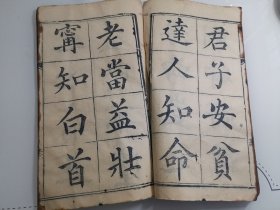 君子安貧
達人知命
老當益壯
甯知白首